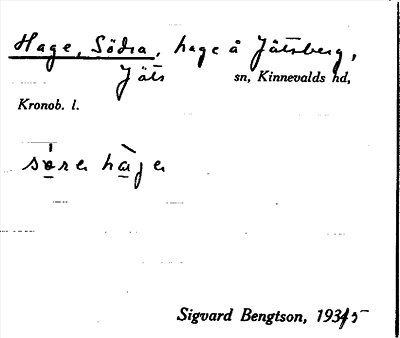 Hage, Södra, hage å Jätsberg,
Jäts sn, Kinnevalds hd,
Kronob. l.
søre hage
Sigvard Bengtson, 1935